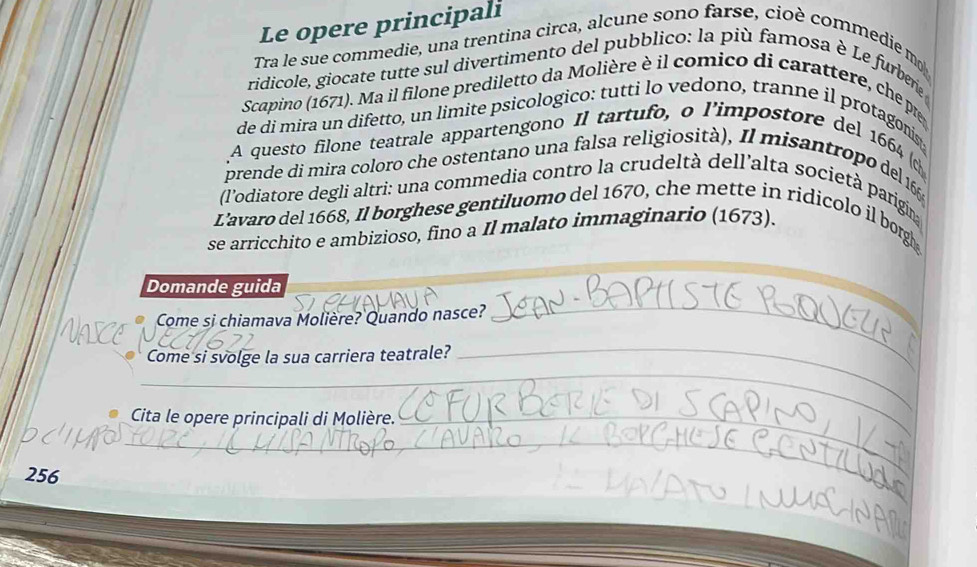 Le opere principali
Tra le sue commedie, una trentina circa, alcune sono farse, cioè commedie
ridicole, giocate tutte sul divertimento del pubblico: la più famosa è Le furberie
Scapino (1671). Ma il filone prediletto da Molière è il comico di carattere, che
de di mira un difetto, un limite psicologico: tutti lo vedono, tranne il protagonista
A questo filone teatrale appartengono Il tartufo, o l'impostore del 1664
prende di mira coloro che ostentano una falsa religiosità), Il misantropo del
(l'odiatore degli altri: una commedia contro la crudeltà dell'alta società parigina
L'avaro del 1668, Il borghese gentiluomo del 1670, che mette in ridicolo il
se arricchito e ambizioso, fino a Il malato immaginario (1673).
Domande guida
SI CHIAMAVA JEAN-BAPTISTE
Come si chiamava Molière? Quando nasce?
NASCE NEL 1622
Come si svolge la sua carriera teatrale?
Cita le opere principali di Molière. LE FURBERIE DI SCAPINO, IL
O L'IMPOSTORE, IL MISANTROPO, L'AVARO, IL BORGHESE
IL MALATO IMMAGINARIO
256